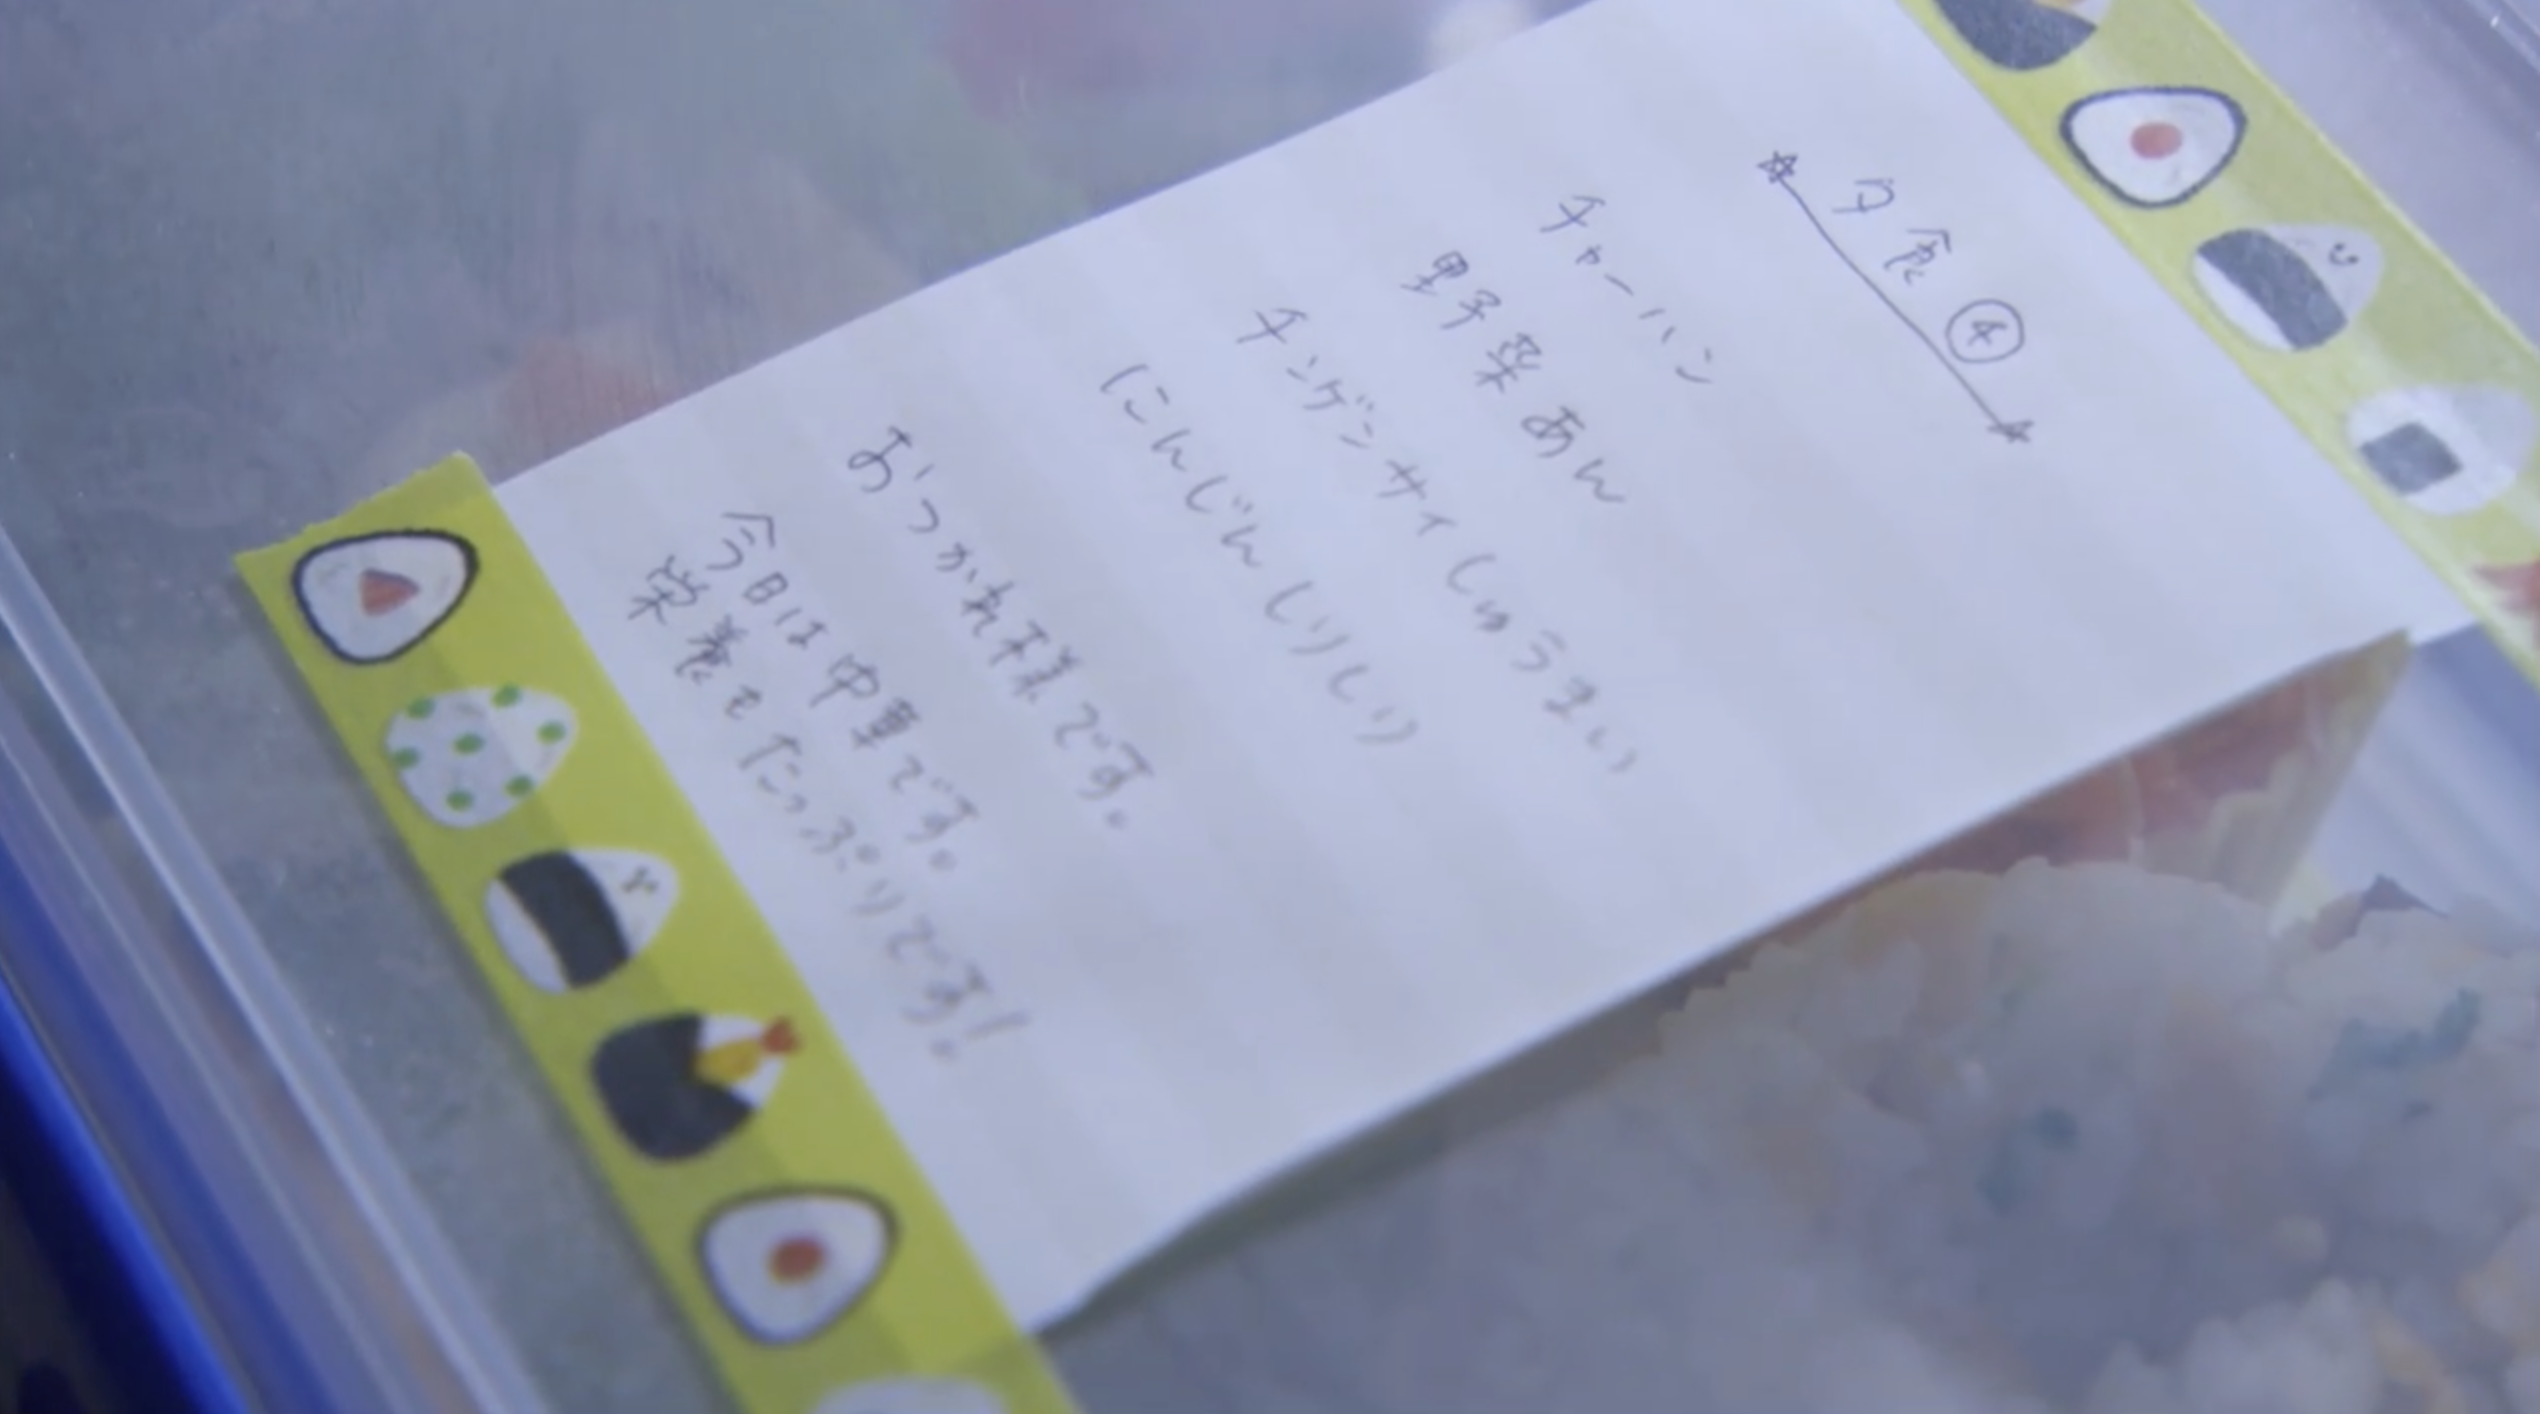 夕食④
チャーハン
野菜あん
チンゲンサイしゅうまい
にんじんしりしり
おつかれ様です。
今日は中華です。
栄養もたっぷりです!